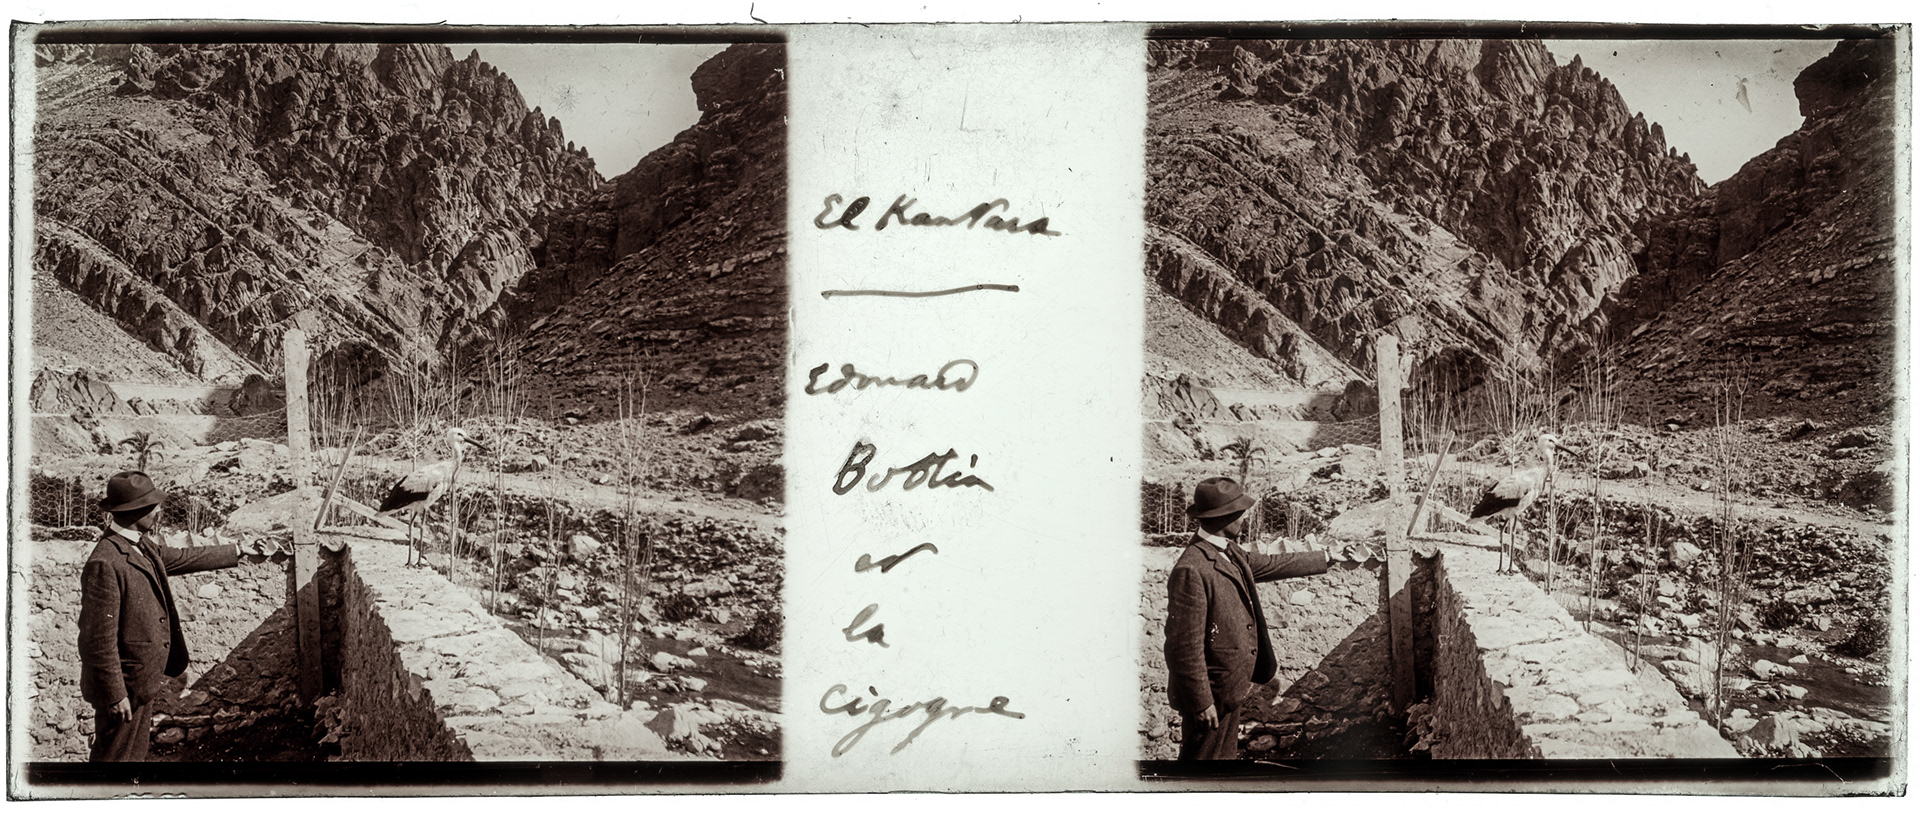 El Kantara
Edouard
Boblin
et
la
cigogne